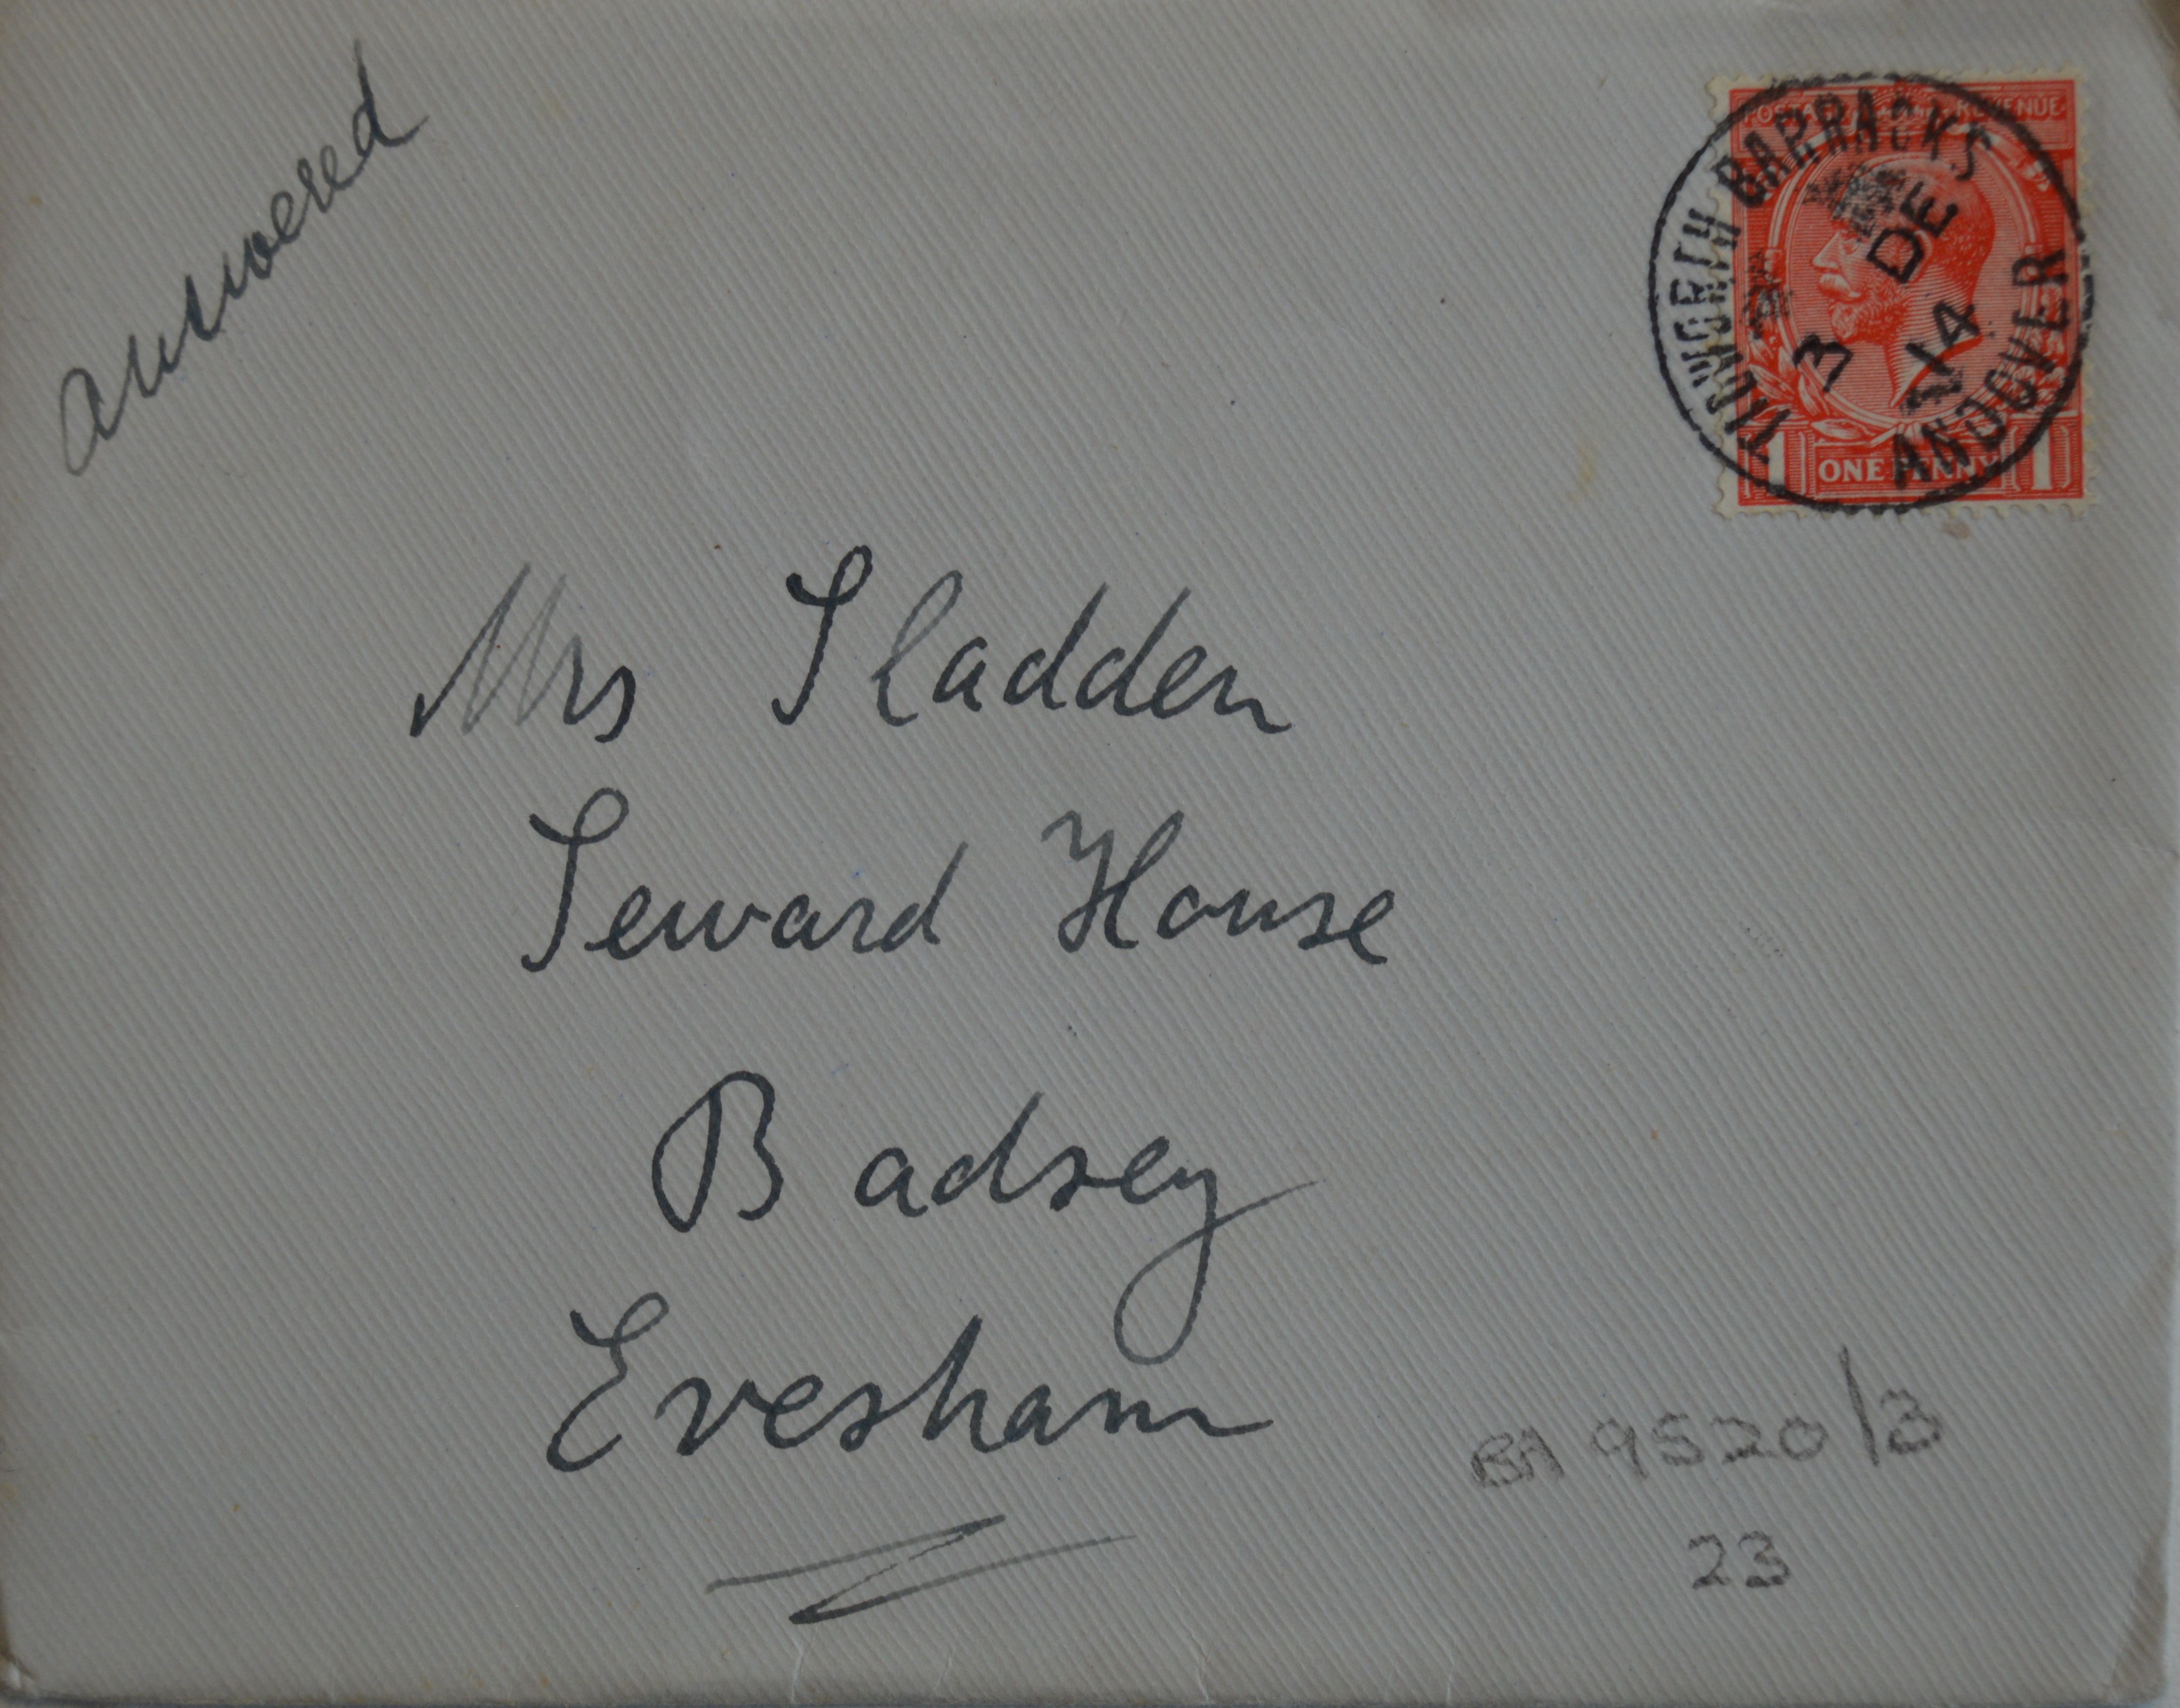 answered
POSTAGE REVENUE
TIDWORTH BARRACKS
3 DE 14
ANDOVER
1 ONE PENNY 1
Mrs Sladden
Seward House
Badsey
Evesham
BA 9520/3
23